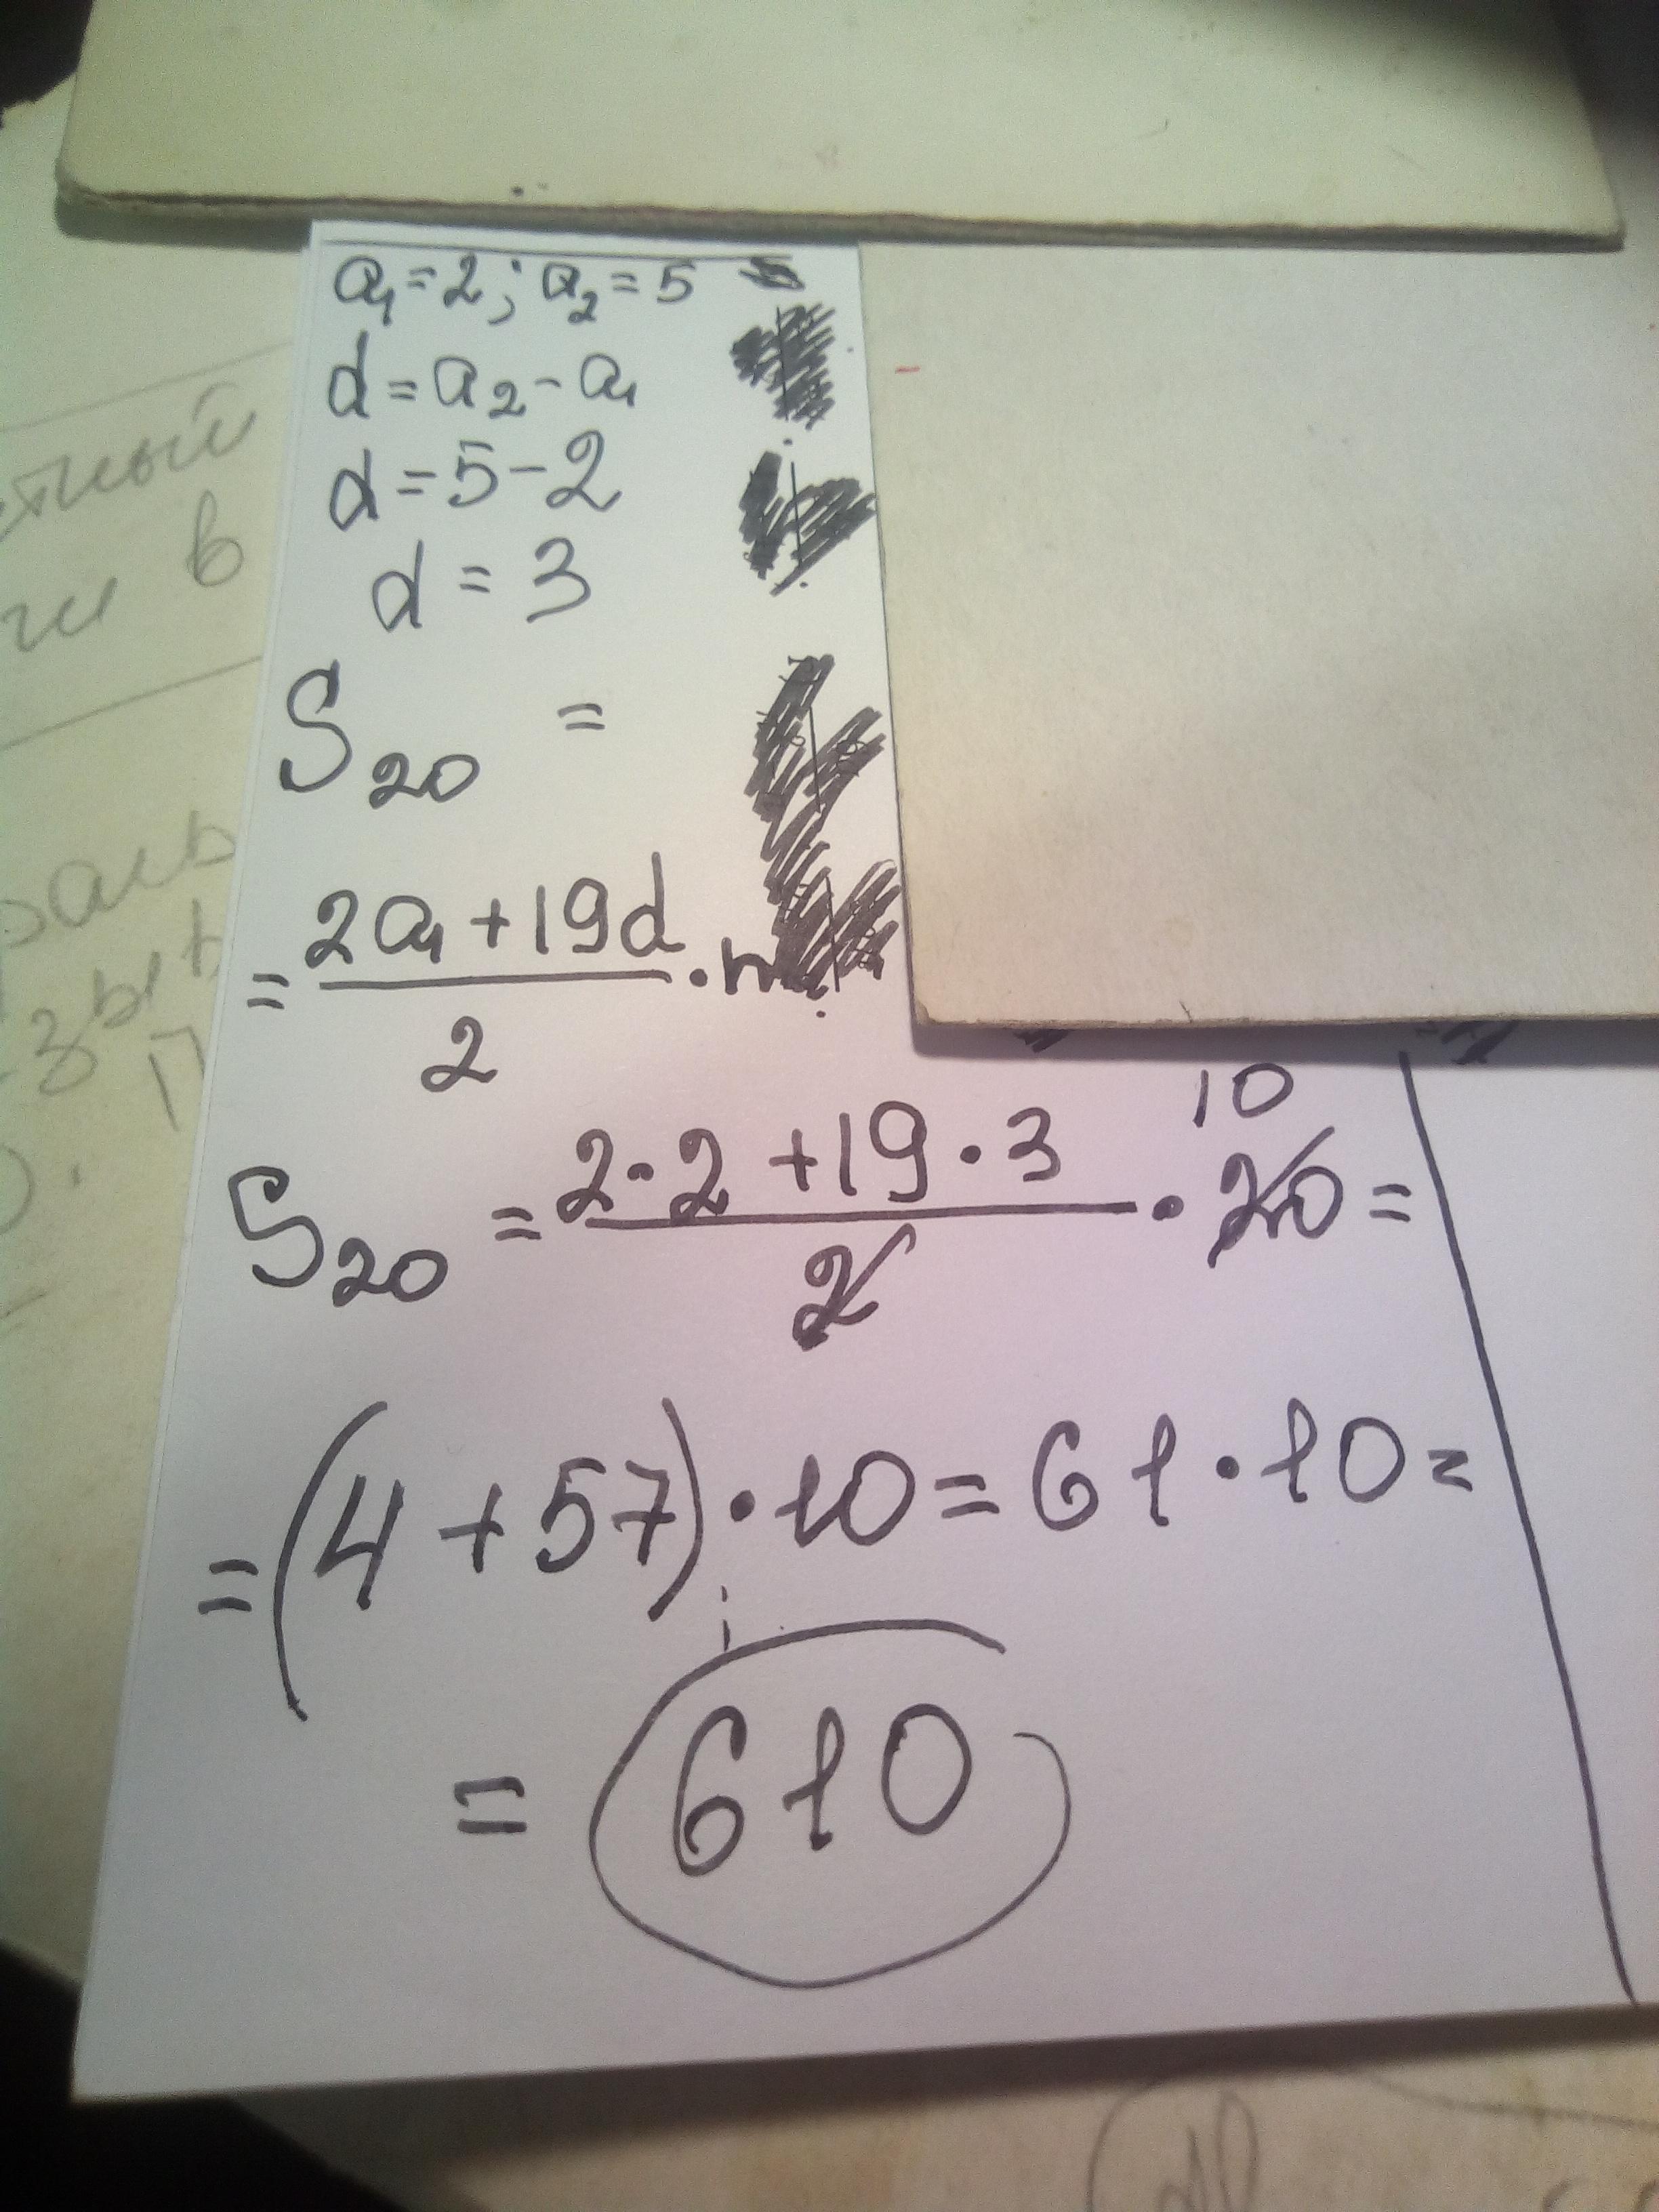 a₁=2; a₂=5
d=a₂-a₁
d=5-2
d=3
S₂₀ =
= (2a₁+19d)/2 · n
S₂₀ = (2·2+19·3)/2 · 20 =
10
=(4+57)·10=61·10=
= 610
тный
в